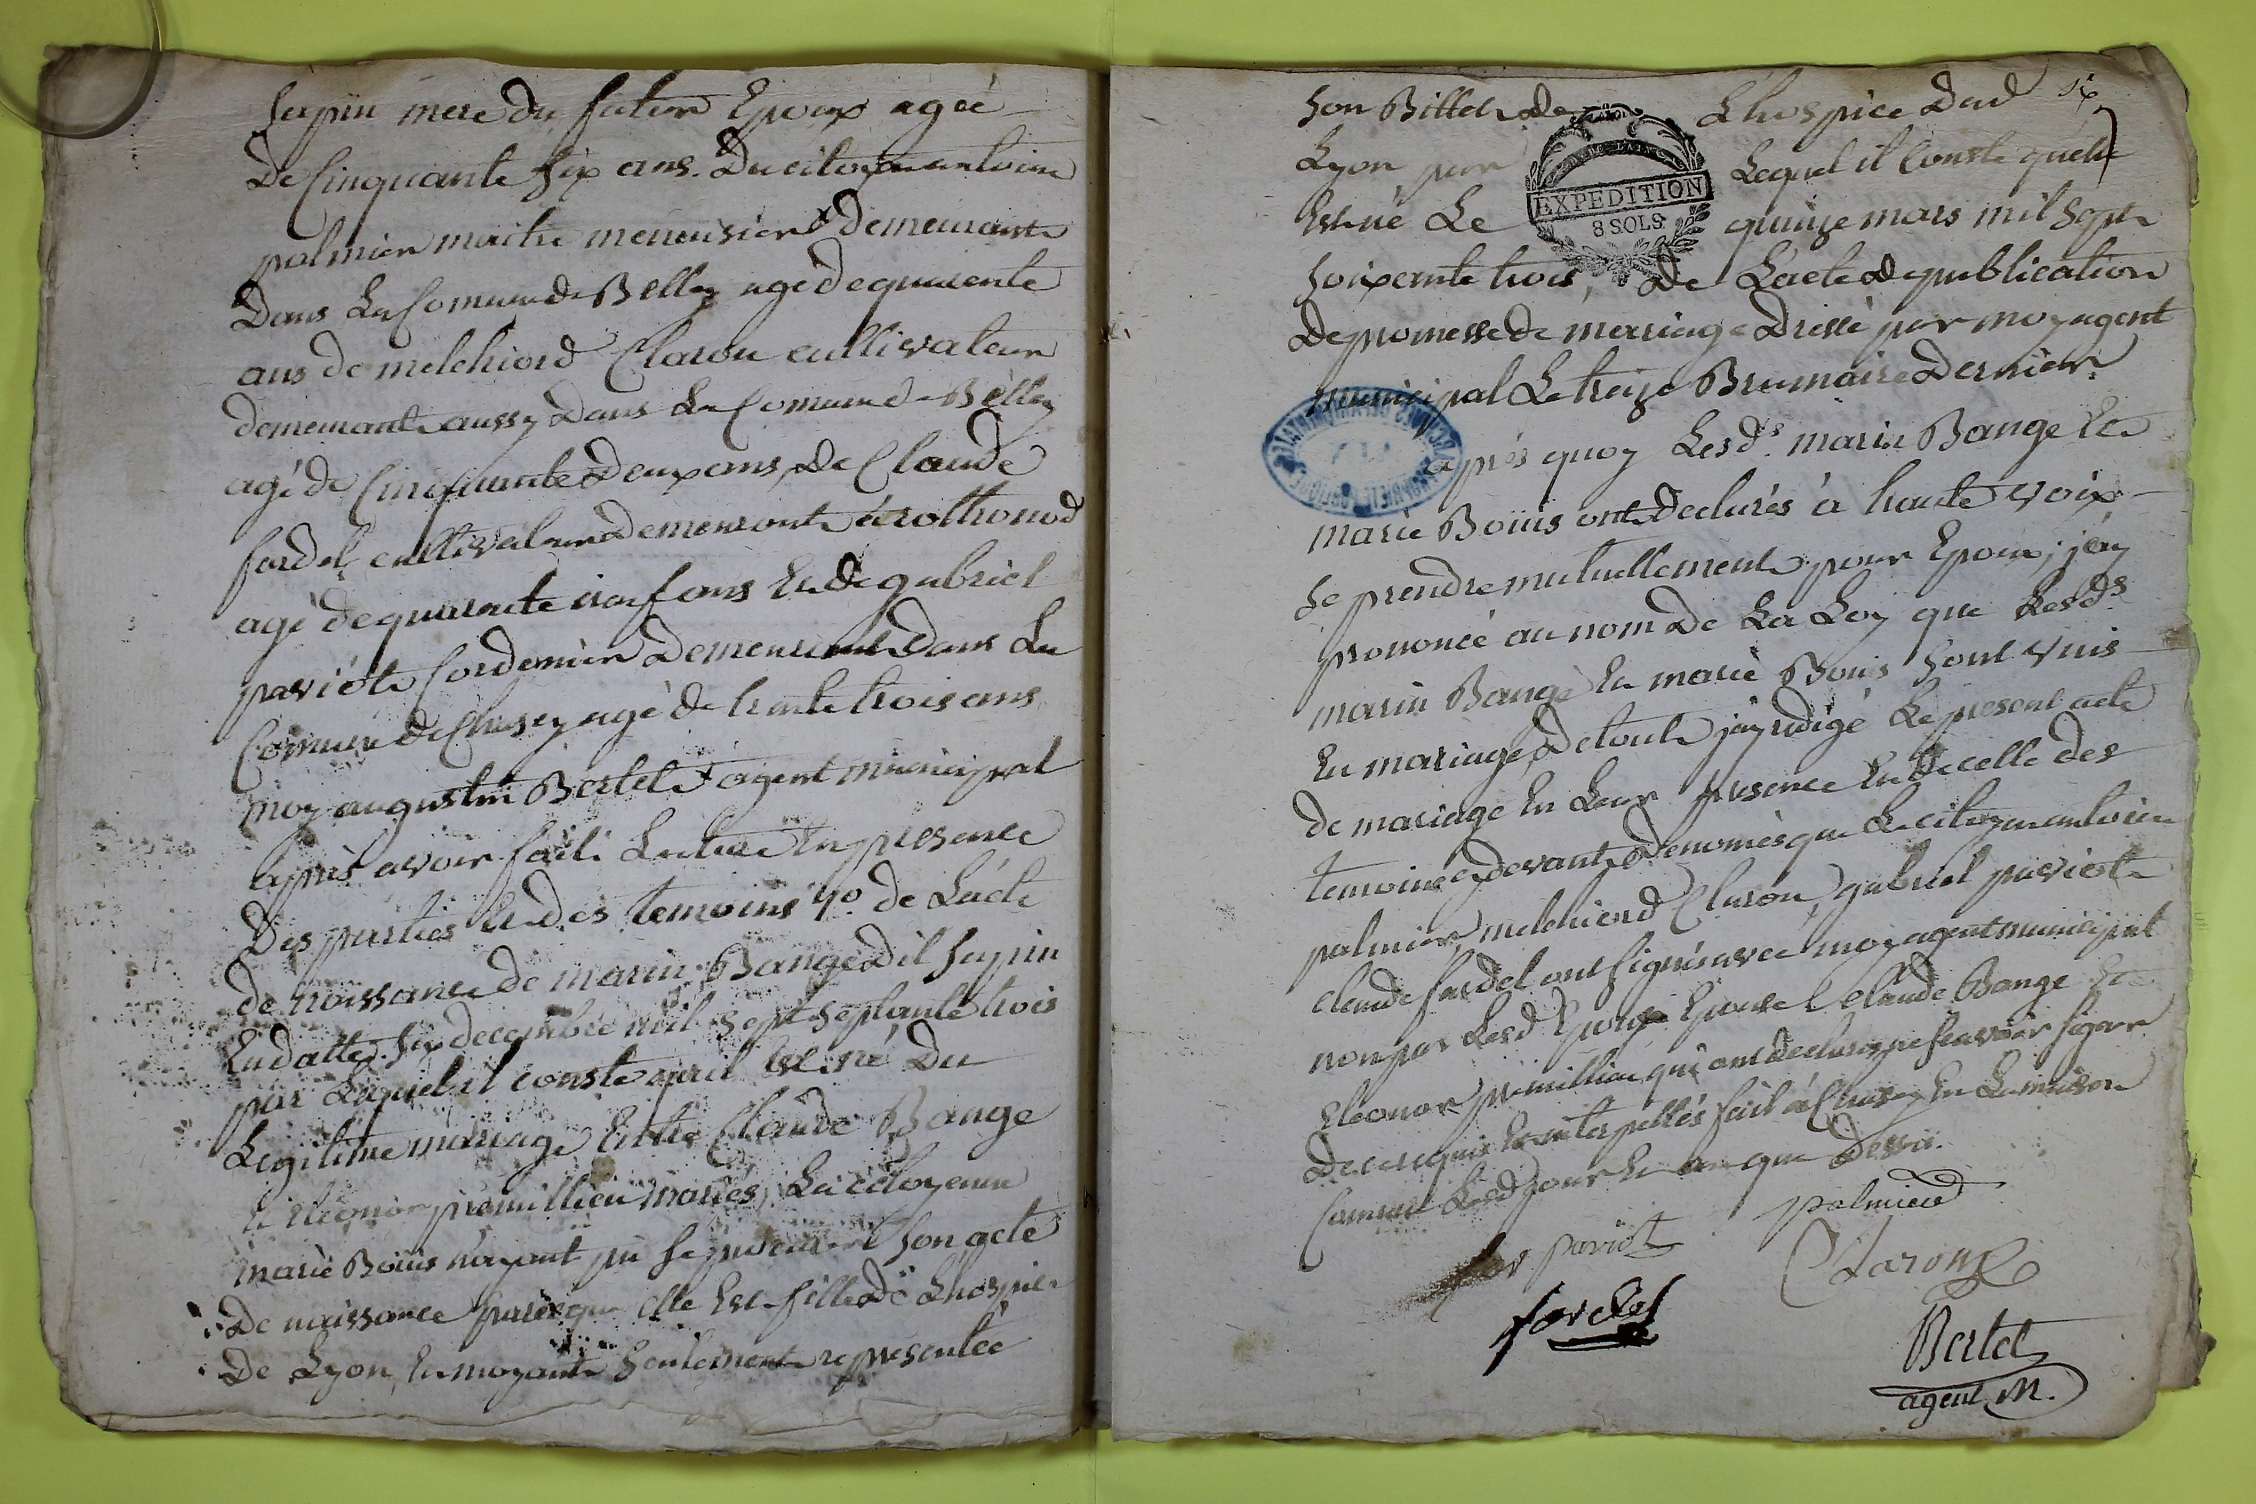 Sapin mere du futur Epoux agée
De Cinquante Six ans. Du citoyen antoine
palmier maitre menusier demeurant
Dans La Comune de Belley agé de quarente
ans de melchiord Claron cultivateur
demeurant aussy Dans La Comune de Belley
agé de Cinquante deux ans, de Claude
fardel cultivateur demeurant à rothonod
agé de quarante neuf ans Et de gabriel
paviot Cordonier demeurant Dans La
Comune de Chasey agé de trente trois ans
moy augustin Bertet agent municipal
après avoir fait Lecture En presence
Des parties Et des temoins 1o. de L'acte
de naissance de marin Bange dit Sapin
En datte six decembre mil sept septante trois
par Lequel il conste qu'il Est né Du
Legitime mariage Entre Claude Bange
Et Eleonor premillieu mariés, La citoyenne
marie Boüis n'ayant pu Se procurer Son acte
De naissance parce que elle Est fille De L'hospice
De Lyon, Et n'ayant Seulement representée
Son Billet de L'hospice dud six
Lyon par Lequel il Conste qu'elle
Est né Le quinze mars mil Sept
Soixante trois, de L'acte de publication
De promesse de mariage Dressé par moy agent
municipal Le treize Brumaire dernier
EXPÉDITION
8 SOLS
après quoy Lesds. marin Bange Et
marie Boüis ont declarés à haute voix
Se prendre mutuellement pour Epoux, j'ay
prononcé au nom de La Loy que Lesds
marin Bange Et marie Boüis Sont unis
En mariage, de tout j'ay redigé Le present acte
de mariage En Leur presence Et de celle des
temoins cydevant denomés que Le citoyen antoine
palmier, melchiord Claron, gabriel paviot
claude fardel ont signés avec moy agent municipal
non pas Lesd Epoux Epouse Claude Bange Et
Eleonor premillieu qui ont declarés ne scavoir signer
De ce requis Et interpellés fait à Chasey En La maison
Comune Lesd jour Et an que dessus.
paviot palmier
Claron
fardel
Bertet
agent M.